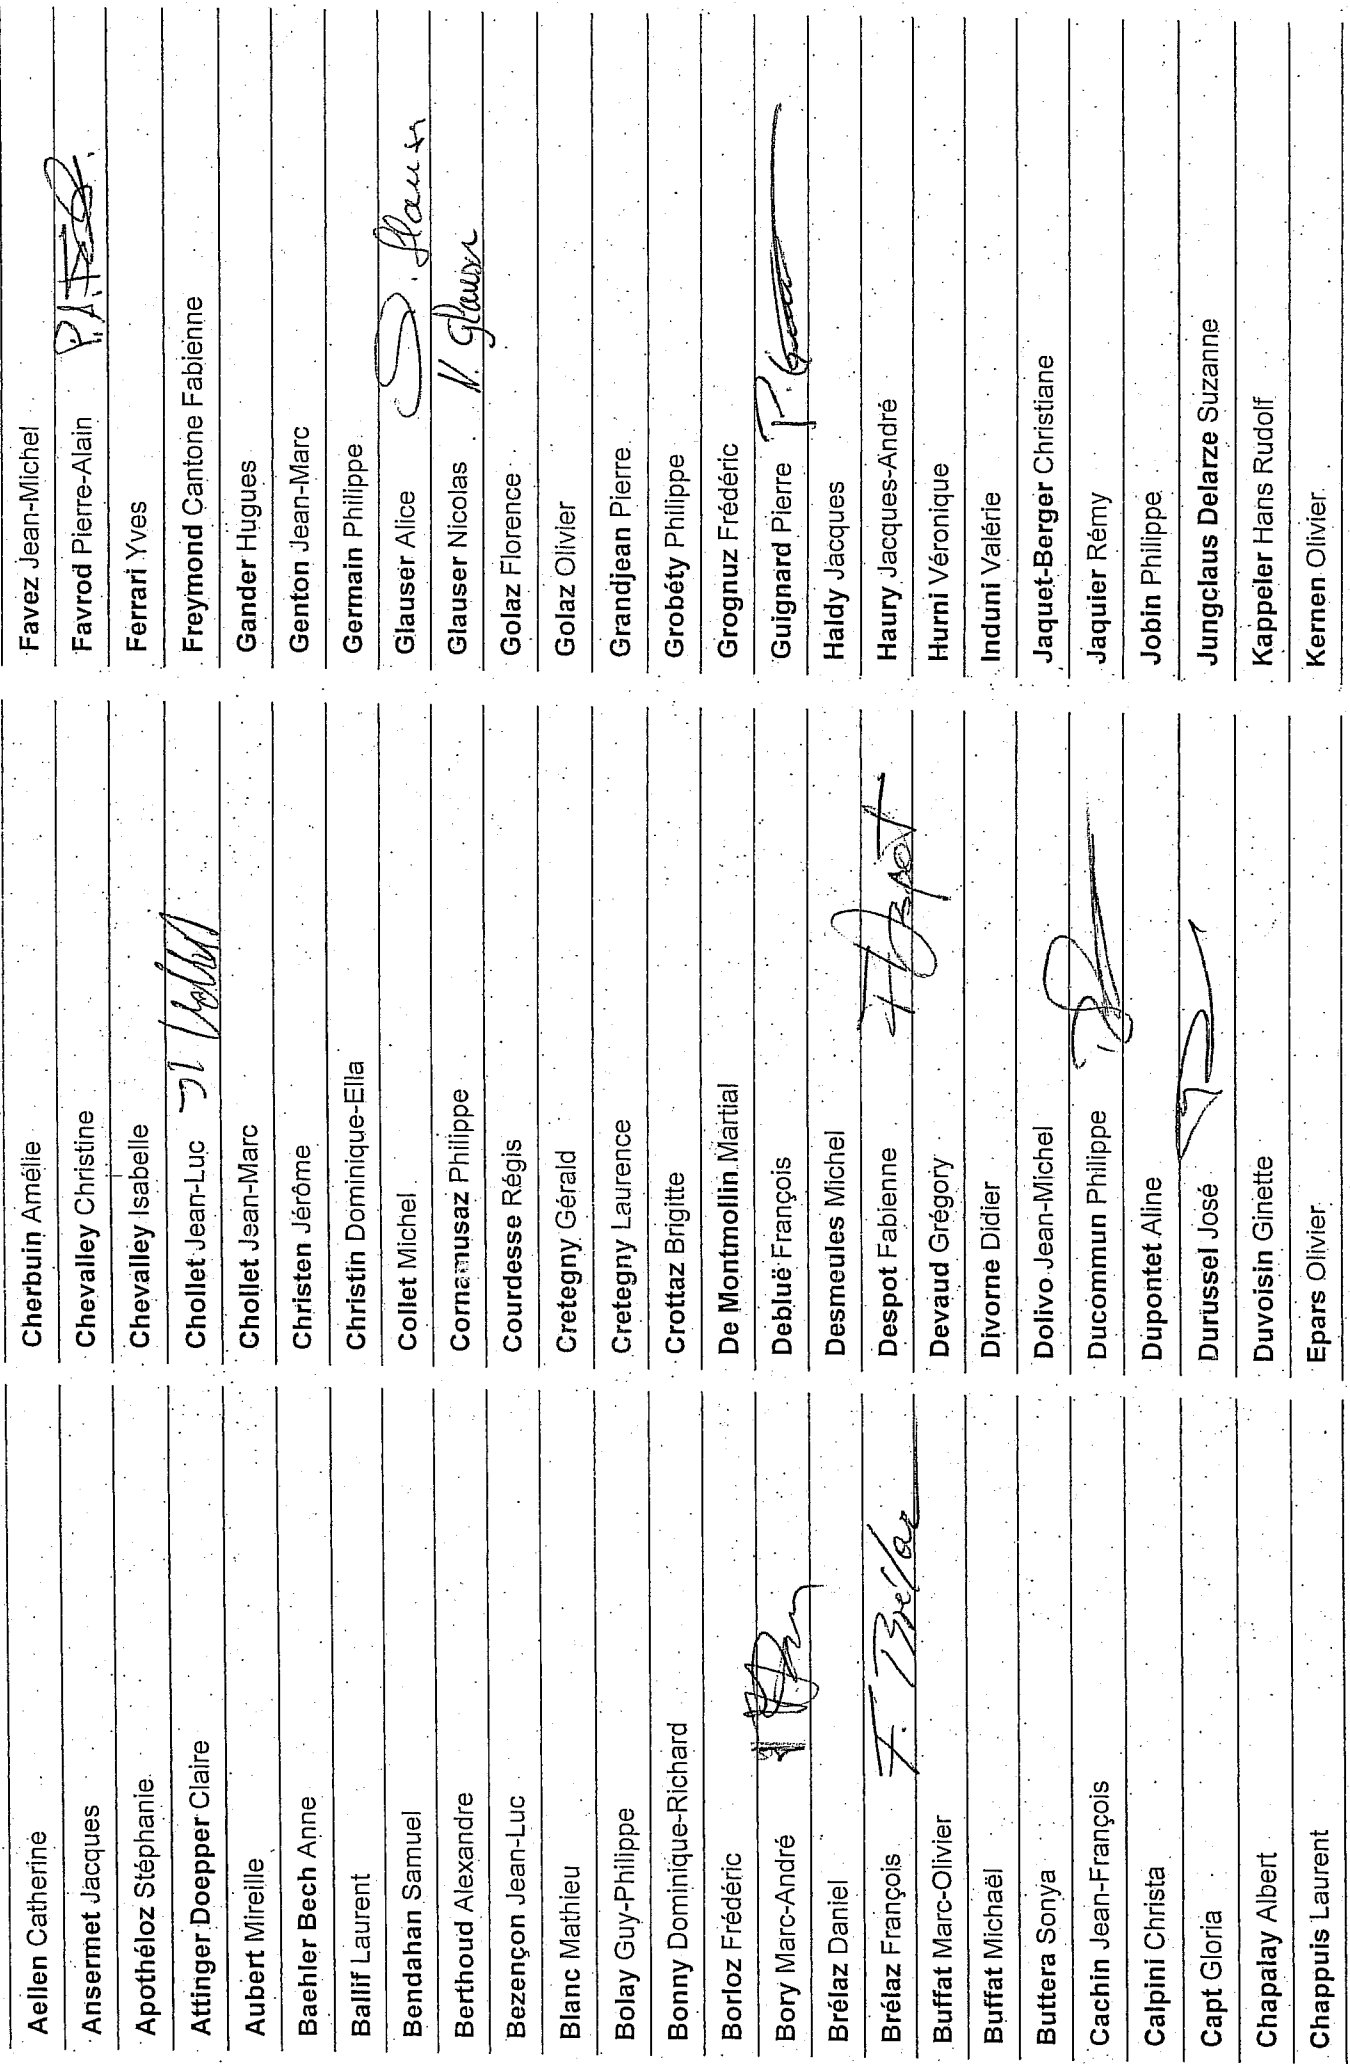 Aellen Catherine
Ansermet Jacques
Apothéloz Stéphanie
Attinger Doepper Claire
Aubert Mireille
Baehler Bech Anne
Ballif Laurent
Bendahan Samuel
Berthoud Alexandre
Bezençon Jean-Luc
Blanc Mathieu
Bolay Guy-Philippe
Bonny Dominique-Richard
Borloz Frédéric
Bory Marc-André
Brélaz Daniel
Brélaz François F. Brélaz
Buffat Marc-Olivier
Buffat Michaël
Buttera Sonya
Cachin Jean-François
Calpini Christa
Capt Gloria
Chappalay Albert
Chappuis Laurent
Cherbuin Amélie
Chevalley Christine
Chevalley Isabelle
Chollet Jean-Luc
Chollet Jean-Marc
Christen Jérôme
Christin Dominique-Ella
Collet Michel
Cornamusaz Philippe
Courdesse Régis
Cretegny Gérald
Cretegny Laurence
Crottaz Brigitte
De Montmollin Martial
Debluë François
Desmeules Michel
Despot Fabienne F Despot
Devaud Grégory
Divorne Didier
Dolivo Jean-Michel
Ducommun Philippe
Dupontet Aline
Durussel José
Duvoisin Ginette
Epars Olivier
Favez Jean-Michel
Favrod Pierre-Alain
Ferrari Yves
Freymond Cantone Fabienne
Gander Hugues
Genton Jean-Marc
Germain Philippe
Glauser Alice
Glauser Nicolas N. Glauser
Golaz Florence
Golaz Olivier
Grandjean Pierre
Grobéty Philippe
Grognuz Frédéric
Guignard Pierre
Haldy Jacques
Haury Jacques-André
Hurni Véronique
Induni Valérie
Jaquet-Berger Christiane
Jaquier Rémy
Jobin Philippe
Jungclaus Delarze Suzanne
Kappeler Hans Rudolf
Kernen Olivier